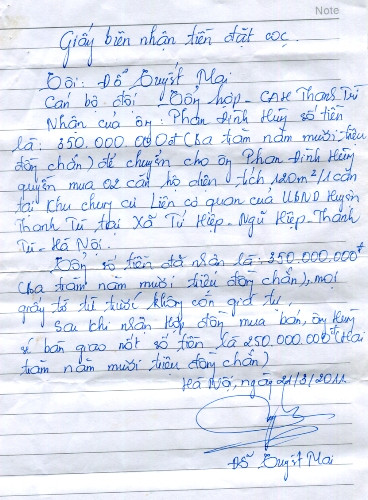 Note
Giấy biên nhận tiền đặt cọc.
Tôi: Đỗ Tuyết Mai
Cán bộ đội Tổng hợp - CAH Thanh Trì
Nhận của ông: Phan Đình Hùng số tiền
là: 350.000.000đ (ba trăm năm mười triệu
đồng chẵn) để chuyển cho ông Phan Đình Hùng
quyền mua 02 căn hộ diện tích 120m²/1 căn
tại khu chung cư Liên cơ quan của UBND Huyện
Thanh Trì tại Xã Tứ Hiệp - Ngũ Hiệp - Thanh
Trì - Hà Nội.
Tổng số tiền đã nhận là: 350.000.000đ
(ba trăm năm mười triệu đồng chẵn), mọi
giấy tờ từ trước không còn giá trị.
Sau khi nhận hợp đồng mua bán, ông Hùng
sẽ bàn giao nốt số tiền là 250.000.000đ (Hai
trăm năm mười triệu đồng chẵn)
Hà Nội, ngày 21/3/2011
Đỗ Tuyết Mai